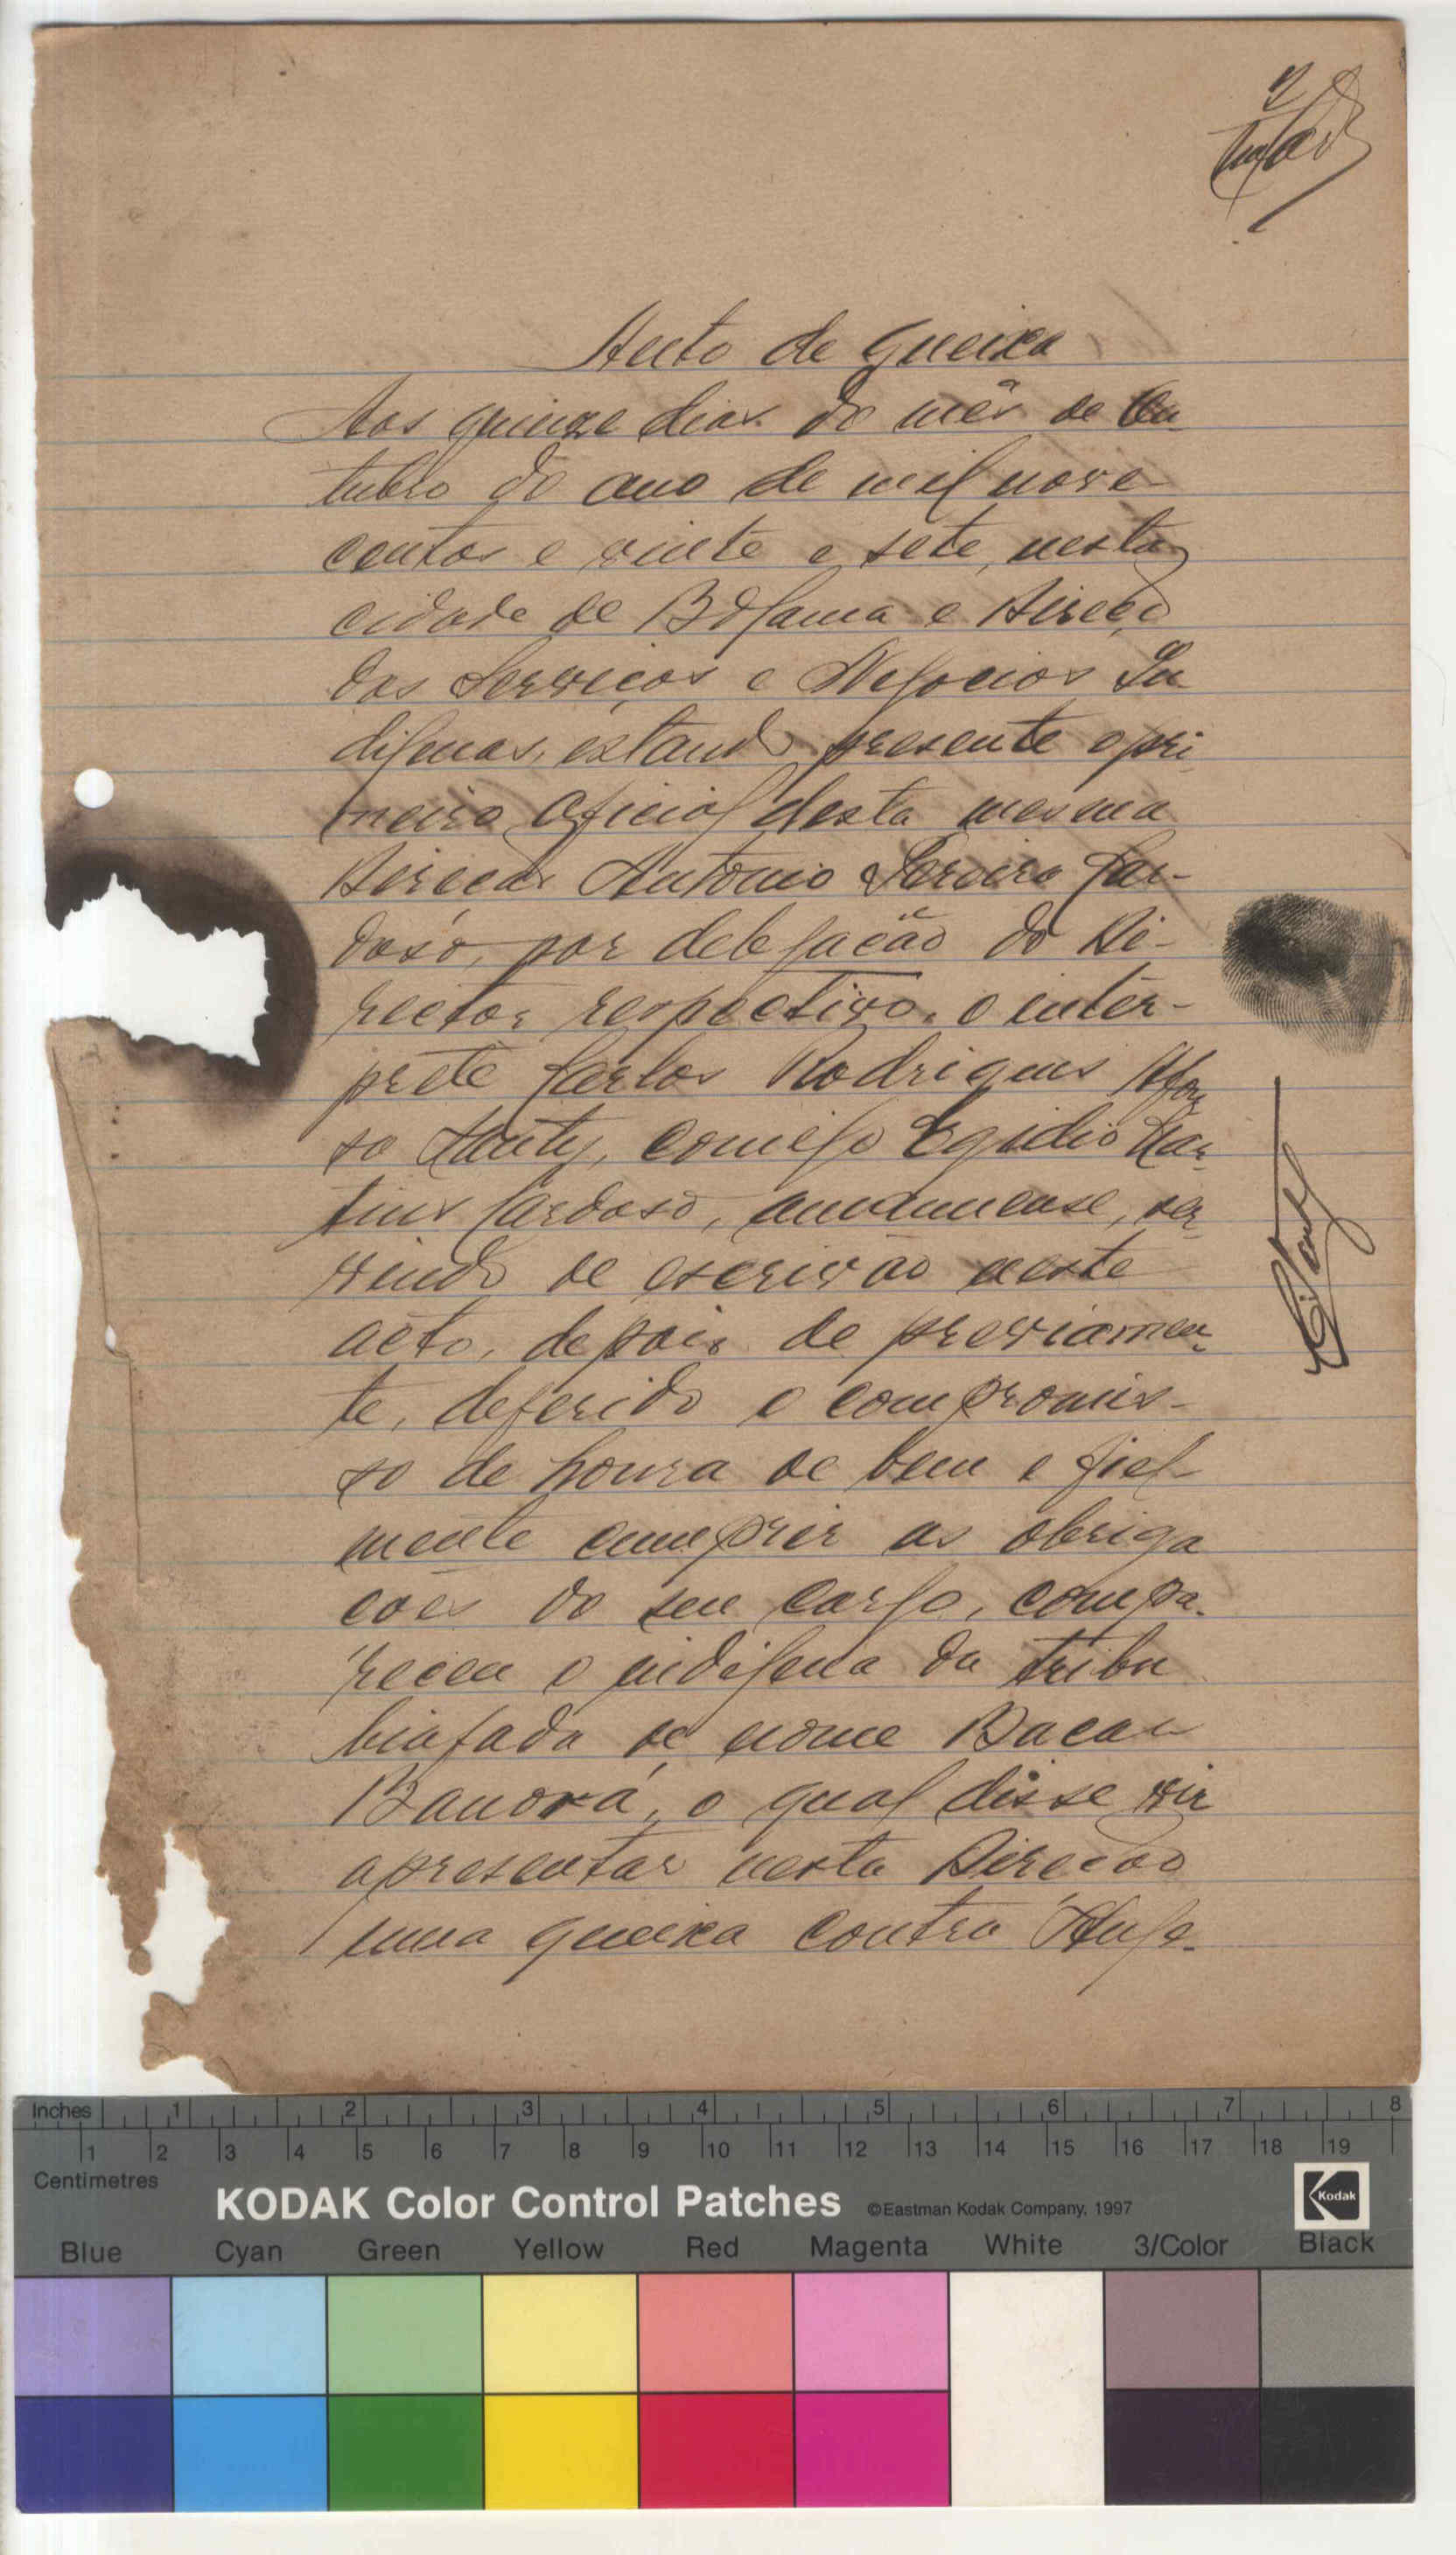 2
Auto de queixa
Aos quinze dias do mês de Ou-
tubro do ano de mil nove-
centos e vinte e sete, nesta
cidade de Bolama e Direcção
dos Serviços e Negocios In
digenas, estando presente o pri-
meiro oficial desta mesma
Direcção Antonio Pereira Car-
doso, por delegação do Di-
rector respectivo, o intér-
prete Carlos Rodrigues Afon
so Santy, comigo Egidio Mar-
tins Cardoso, amanuense, ser-
vindo de escrivão neste
acto, depois de previamen-
te, deferido o compromis-
so de honra de bem e fiel-
mente cumprir as obriga
coes do seu cargo, compa-
receu o indigena da tribu
biafada de nome Bacar
Banorá, o qual disse vir
apresentar nesta Direcção
uma queixa contra
Inches 1 2 3 4 5 6 7 8
1 2 3 4 5 6 7 8 9 10 11 12 13 14 15 16 17 18 19
Centimetres
KODAK Color Control Patches ©Eastman Kodak Company, 1997 Kodak
Blue Cyan Green Yellow Red Magenta White 3/Color Black